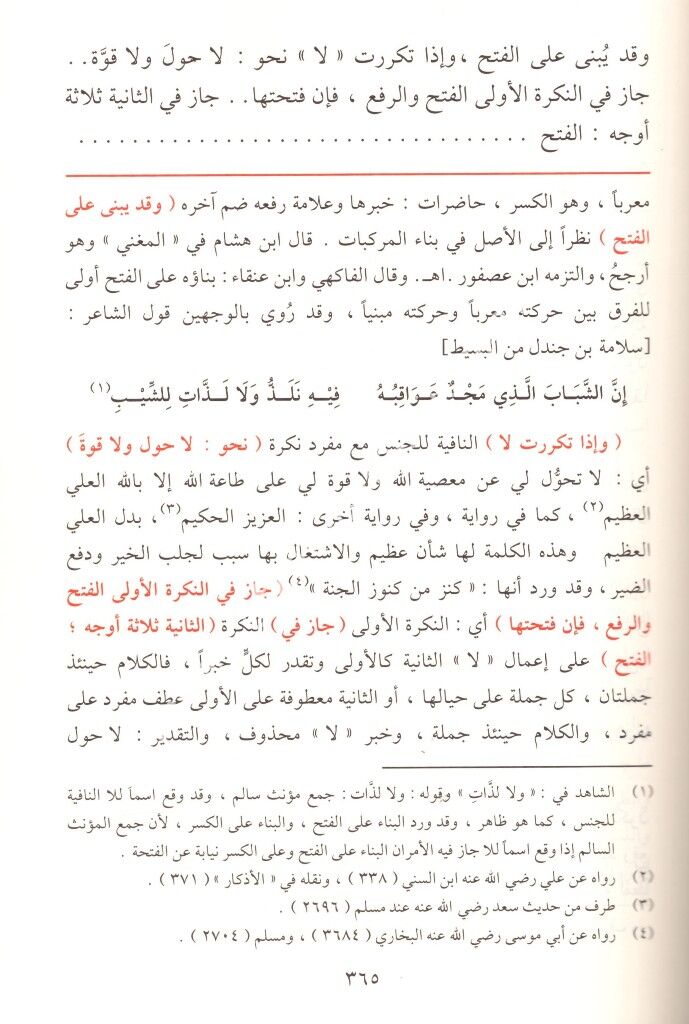 وقد يُبنى على الفتح ،وإذا تكررت « لا » نحو : لا حولَ ولا قوَّة . .
جاز في النكرة الأولى الفتح والرفع ، فإن فتحتها . . جاز في الثانية ثلاثة
أوجه : الفتح . . . . . . . . . . . . . . . . . . . . . . . . . . . . . . . . . .
معرباً ، وهو الكسر ، حاضرات : خبرها وعلامة رفعه ضم آخره ( وقد يبنى على
الفتح ) نظراً إلى الأصل في بناء المركبات . قال ابن هشام في « المغني » وهو
أرجحُ، والتزمه ابن عصفور .اهـ. وقال الفاكهي وابن عنقاء : بناؤه على الفتح أولى
للفرق بين حركته معرباً وحركته مبنياً ، وقد رُوي بالوجهين قول الشاعر :
[سلامة بن جندل من البسيط]
إِنَّ الشَّبَابَ الَّذِي مَجْدٌ عَوَاقِبُهُ فِيْهِ نَلَذُّ وَلَا لَذَّاتِ لِلشِّيْبِ(١)
( وإذا تكررت لا ) النافية للجنس مع مفرد نكرة ( نحو : لا حول ولا قوةَ )
أي : لا تحوُّل لي عن معصية الله ولا قوة لي على طاعة الله إلا بالله العلي
العظيم(٢) ، كما في رواية ، وفي رواية أخرى : العزيز الحكيم(٣)، بدل العلي
العظيم وهذه الكلمة لها شأن عظيم والاشتغال بها سبب لجلب الخير ودفع
الضير ، وقد ورد أنها : « كنز من كنوز الجنة »(٤) ( جاز في النكرة الأولى الفتح
والرفع ، فإن فتحتها ) أي : النكرة الأولى ( جاز في ) النكرة ( الثانية ثلاثة أوجه ؛
الفتح ) على إعمال « لا » الثانية كالأولى وتقدر لكلٍّ خبراً ، فالكلام حينئذ
جملتان ، كل جملة على حيالها ، أو الثانية معطوفة على الأولى عطف مفرد على
مفرد ، والكلام حينئذ جملة ، وخبر « لا » محذوف ، والتقدير : لا حول
(١) الشاهد في : « ولا لذَّاتِ » وقوله : ولا لذَّات : جمع مؤنث سالم ، وقد وقع اسماً للا النافية
للجنس ، كما هو ظاهر ، وقد ورد البناء على الفتح ، والبناء على الكسر ، لأن جمع المؤنث
السالم إذا وقع اسماً للا جاز فيه الأمران البناء على الفتح وعلى الكسر نيابة عن الفتحة .
(٢) رواه عن علي رضي الله عنه ابن السني ( ٣٣٨ ) ، ونقله في « الأذكار » ( ٣٧١ ) .
(٣) طرف من حديث سعد رضي الله عنه عند مسلم ( ٢٦٩٦ ) .
(٤) رواه عن أبي موسى رضي الله عنه البخاري ( ٣٦٨٤ ) ، ومسلم ( ٢٧٠٤ ) .
٣٦٥